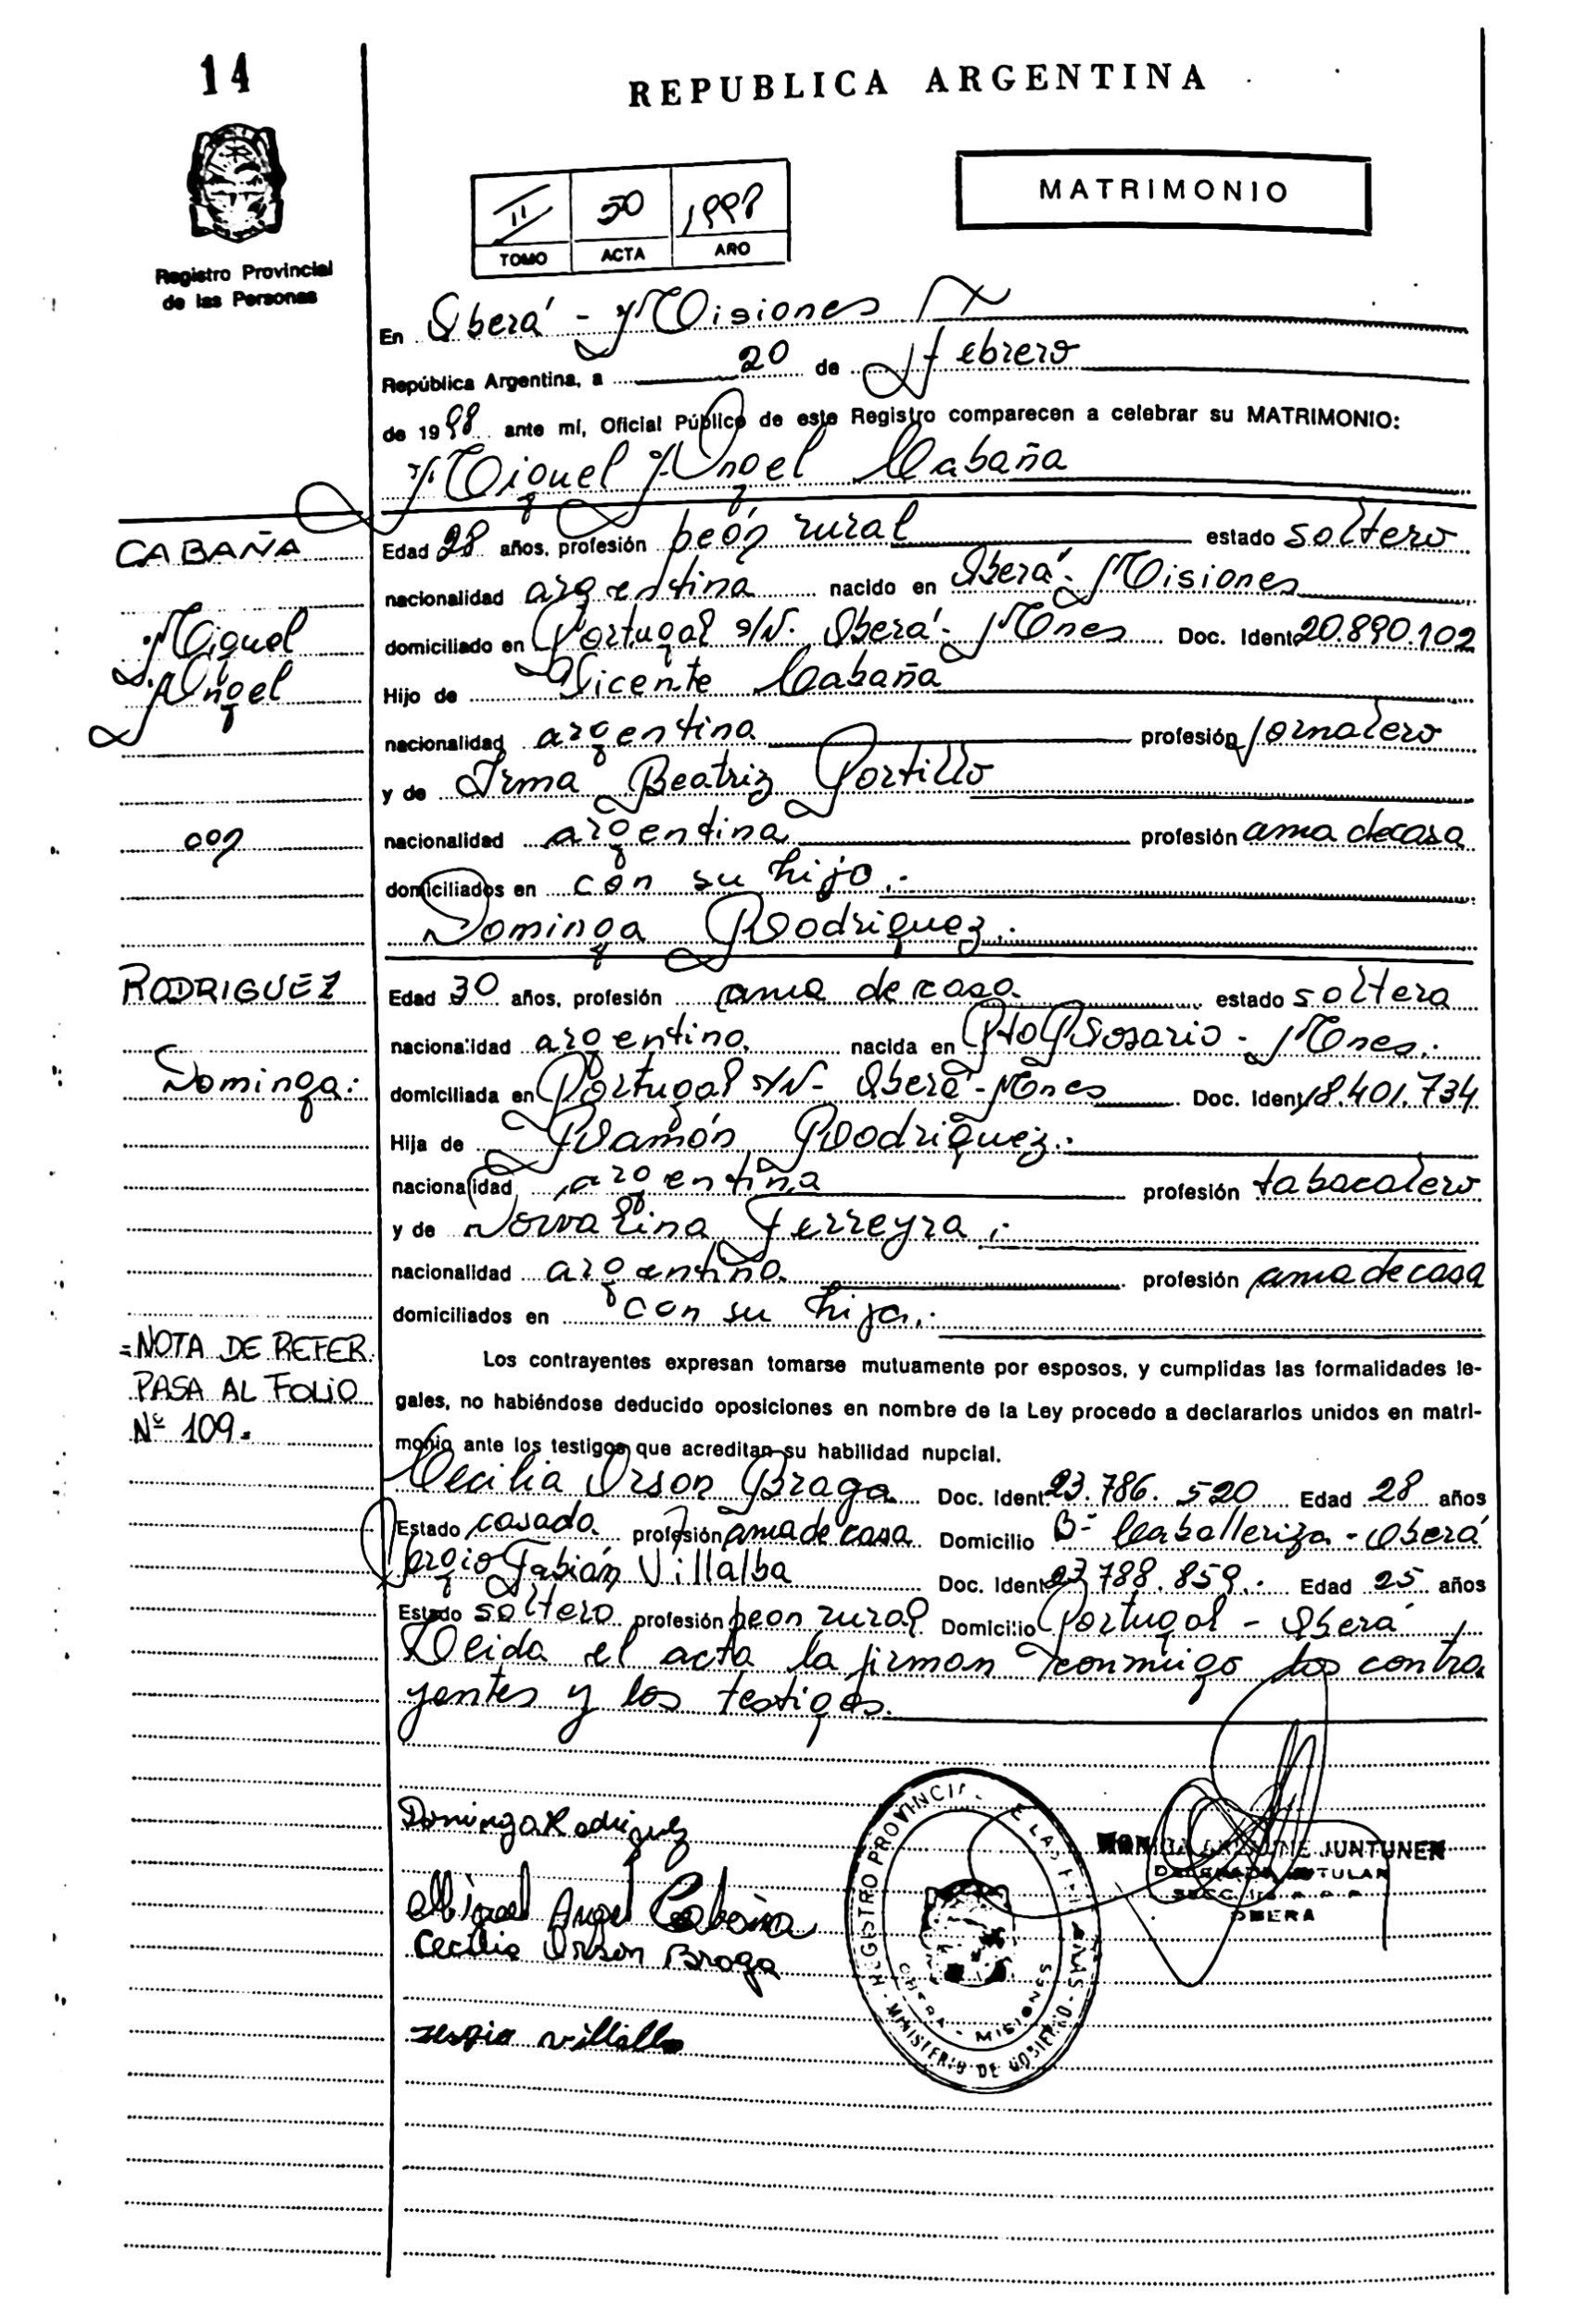 14
REPUBLICA ARGENTINA
MATRIMONIO
II 50 1998
TOMO ACTA AÑO
Registro Provincial
de las Personas
En Oberá - Misiones
República Argentina, a 20 de febrero
de 1998 ante mí, Oficial Público de este Registro comparecen a celebrar su MATRIMONIO:
Miguel Angel Cabaña
CABAÑA
Miguel
Angel
Edad 28 años, profesión peón rural estado soltero
nacionalidad argentina nacido en Oberá - Misiones
domiciliado en Portugal s/N. Oberá - Mnes Doc. Ident. 20.890.102
Hijo de Vicente Cabaña
nacionalidad argentina profesión jornalero
y de Irma Beatriz Portillo
nacionalidad argentina profesión ama de casa
domiciliados en con su hijo.-
Dominga Rodriguez.-
RODRIGUEZ
Dominga:
Edad 30 años, profesión ama de casa estado soltera
nacionalidad argentina nacida en Pto Rosario - Mnes.-
domiciliada en Portugal s/N - Oberá - Mnes Doc. Ident. 18.401.734
Hija de Ramón Rodriguez.-
nacionalidad argentina profesión tabacalero
y de Ferreyra.-
nacionalidad argentina profesión ama de casa
domiciliados en con su hija.-
=NOTA DE REFER.
PASA AL FOLIO
Nº 109.
Los contrayentes expresan tomarse mutuamente por esposos, y cumplidas las formalidades le-
gales, no habiéndose deducido oposiciones en nombre de la Ley procedo a declararlos unidos en matri-
monio ante los testigos que acreditan su habilidad nupcial.
Cecilia Orson Braga Doc. Ident. 23.786.520 Edad 28 años
Estado casada profesión ama de casa Domicilio Bº Caballeriza - Oberá
Sergio Fabián Villalba Doc. Ident. 23.788.859.- Edad 25 años
Estado soltero profesión peon rural Domicilio Portugal - Oberá
Leida el acta la firman conmigo los contra
yentes y los testigos.
Dominga Rodriguez
Miguel Angel Cabaña
Cecilia Orson Braga
Sergio Villalba
REGISTRO PROVINCIAL DE LAS PERSONAS - MINISTERIO DE GOBIERNO
OBERA - MISIONES
JUNTUNEN
TITULAR
OBERA